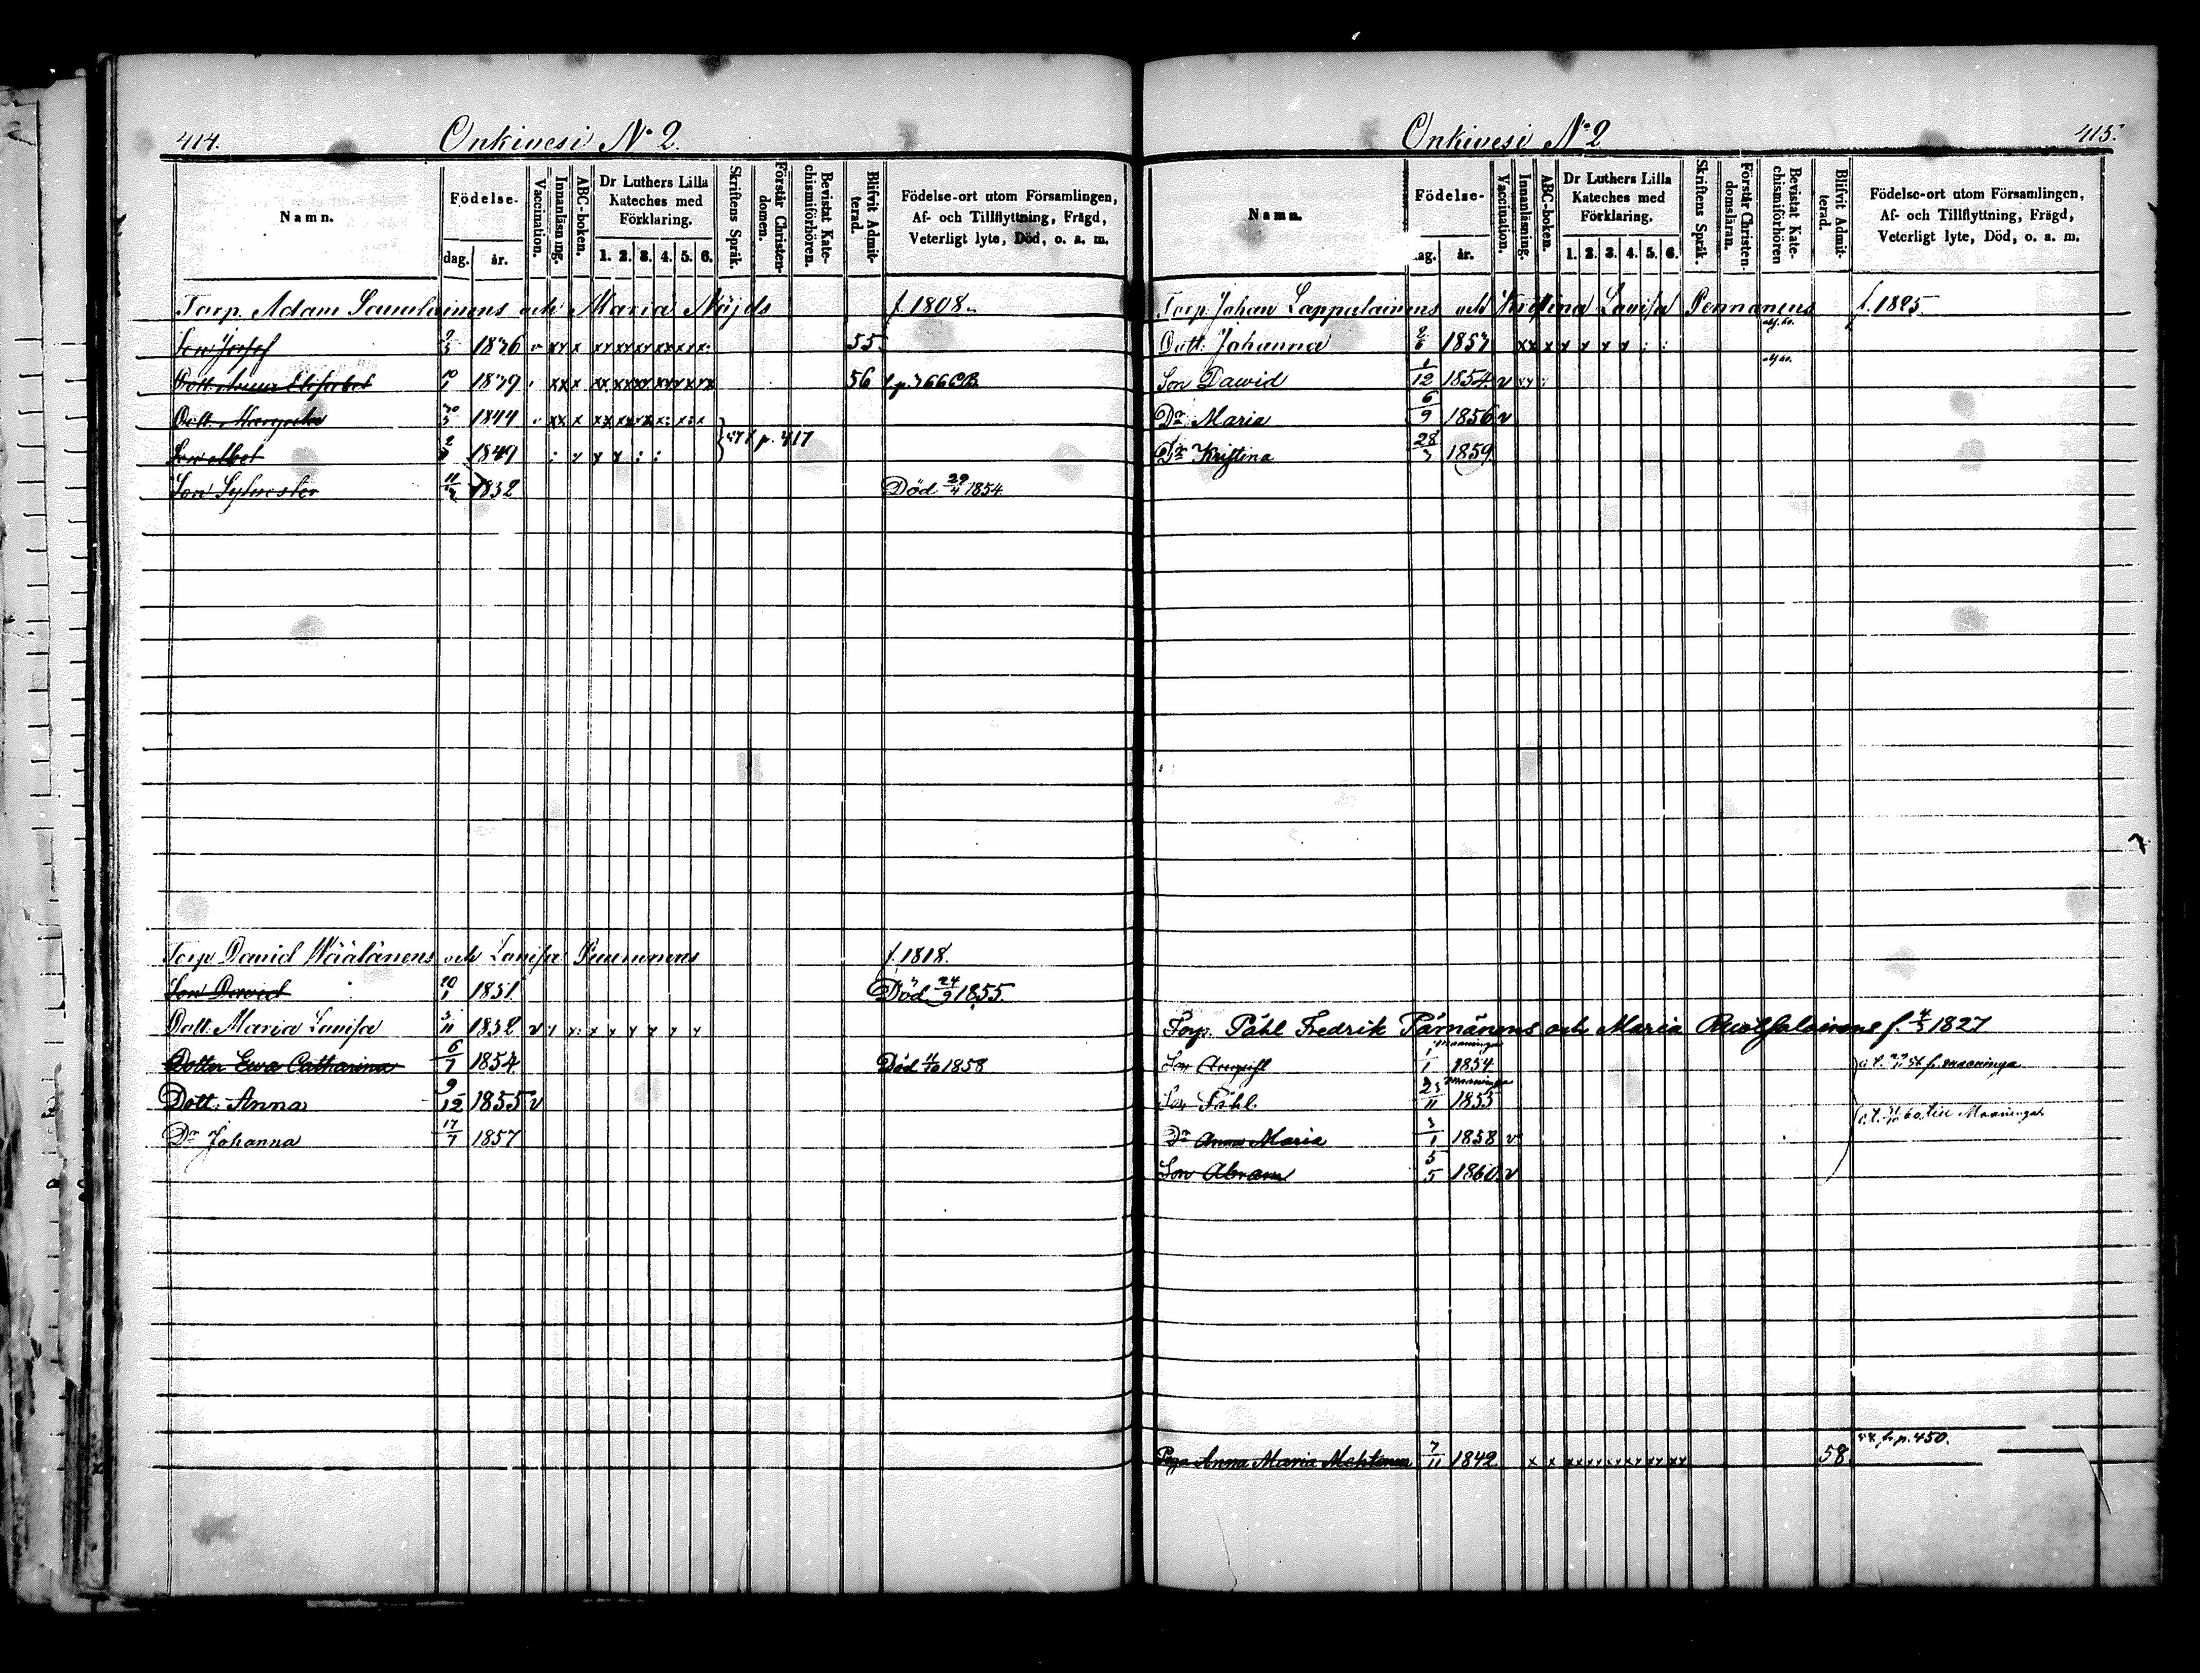 414. Onkivesi N° 2.
Namn. Födelse- dag. år. Vaccination. Innanläsning. ABC-boken. Dr Luthers Lilla Kateches med Förklaring. 1. 2. 3. 4. 5. 6. Skriftens Språk. Förstår Christendomen. Bevistat Katechismiförhören. Blifvit Admitterad. Födelse-ort utom Församlingen, Af- och Tillflyttning, Frägd, Veterligt lyte, Död, o. a. m.
Torp. Adam och Maria Nöjds f. 1808.
Son Josef 1836 v xx x xx xx xx xx xx x: 55.
Dott. Anna Elisabet 10/1 1839 xx x xx xx xx xx xx xx 56 p. 766 CB.
Dott. Margreta 30/3 1844 xx x
Son Abel 1849 p. 417
Son Sylvester 1852 Död 29/4 1854.
Torp David Wäälänens och Lovisa f. 1818.
Son David 10/1 1851. Död 24/9 1855.
Dott. Maria Lovisa 5/11 1852 v
Dotter Eva Catharina 6/7 1854 Död 1858
Dott. Anna 9/12 1855 v
Dr Johanna 17/7 1857
Onkivesi N° 2 415.
Namn. Födelse- dag. år. Vaccination. Innanläsning. ABC-boken. Dr Luthers Lilla Kateches med Förklaring. 1. 2. 3. 4. 5. 6. Skriftens Språk. Förstår Christendomsläran. Bevistat Katechismiförhören Blifvit Admitterad. Födelse-ort utom Församlingen, Af- och Tillflyttning, Frägd, Veterligt lyte, Död, o. a. m.
Torp. Johan Lappalainens och Kristina Lovisa Pennanens f. 1825.
Dott. Johanna
Son Dawid 1/12 1854 v
Dr Maria 6/9 1856 v
Dr Kristina 28/7 1859
Torp. Påhl Fredrik och Maria f. 1827
Maaninga
Son August 1/1 1854 Maaninga
Maaninga
Son Påhl. 1855
till Maaninga
Dr Anna Maria 3/1 1858 v
Son Abram 5/5 1860 v
Piga Anna Maria 7/11 1842 x x xx xx xx xx xx xx 58. p. 450.